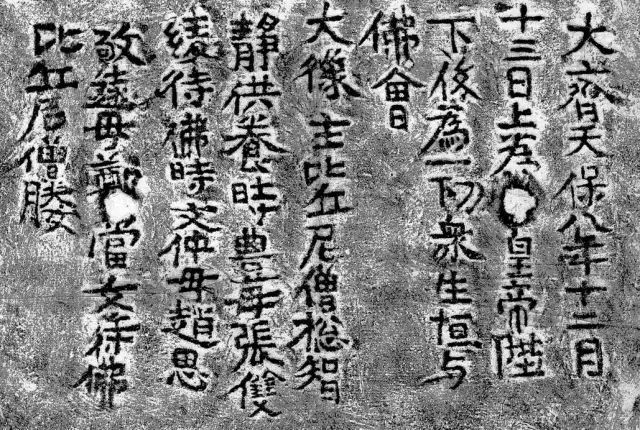 大齊天保八年十二月
十三日上為皇帝陛
下後為一切衆生恒与
佛會日
大像主比丘尼僧惣智
靜供養時豊母張雙
綾待佛時文仲母趙思
敬遠母鄭當文侍佛
比丘尼僧勝